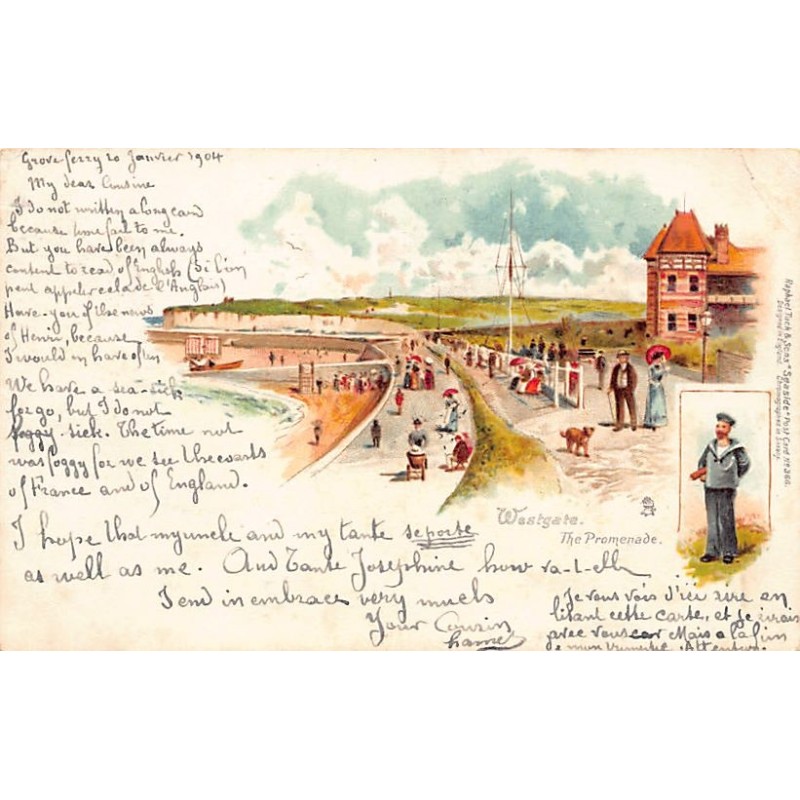 Grove ferry 20 Janvier 1904
My dear Cousine
I do not written a long card
because time fail to me.
But you have been always
content to read of English (si l'on
peut appeler cela de l'Anglais)
Have-you of the news
of Henri, because
I would in have of un
We have a sea-sick
for go, but I do not
foggy-sick. The time not
was foggy for we see the coasts
of France and of England.
I hope that my uncle and my tante se porte
as well as me. And Tante Josephine how va-t-elle
I send in embraces very muchs
Your Cousin
Je vous vois d'ici rire en
lisant cette carte, et je rirais
avec vous car Mais a la fin
Westgate.
The Promenade.
Raphael Tuck & Sons' "Seaside" Post Card No 366.
Designed in England Chromographed in Saxony.